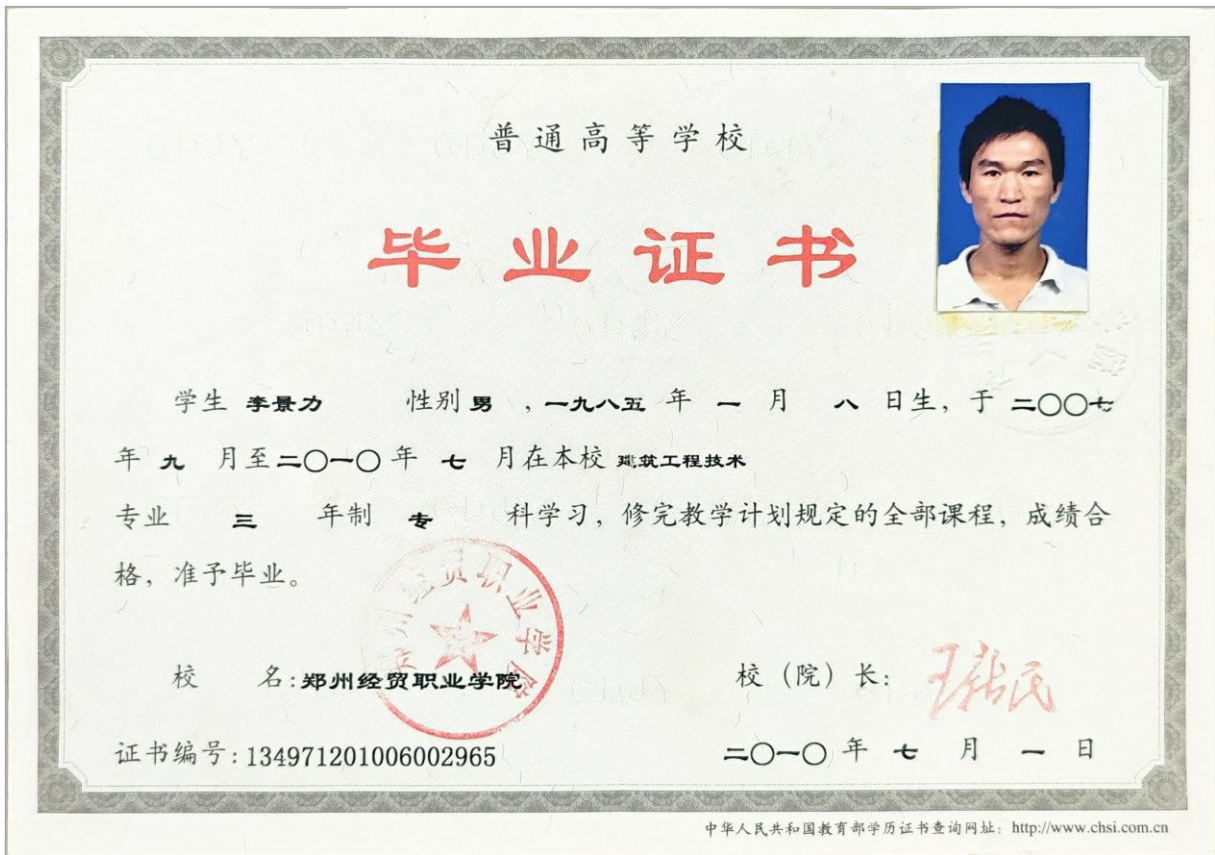 普通高等学校
毕业证书
学生 李景力 性别 男 ，一九八五 年 一 月 八 日生，于 二〇〇七
年 九 月至 二〇一〇 年 七 月在本校 建筑工程技术
专业 三 年制 专 科学习，修完教学计划规定的全部课程，成绩合
格，准予毕业。
郑州经贸职业学院
校 名：郑州经贸职业学院 校（院）长：
证书编号：134971201006002965 二〇一〇 年 七 月 一 日
中华人民共和国教育部学历证书查询网址：http://www.chsi.com.cn